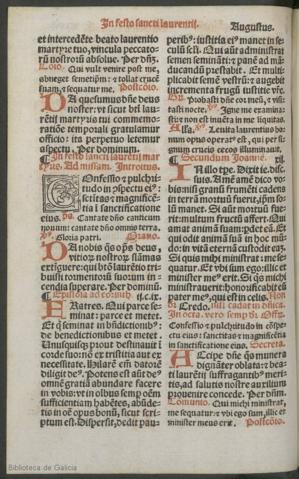 In festo sancti laurentii.
Augustus.
et intercedēte beato laurentio
martyre tuo, vincula peccato-
rū nostrorū absolue. Per dñm.
Cōio. Qui vult venire post me,
abneget semetipm: et tollat crucē
suam, et sequatur me. Postcōio.
Da quesumus dñe deus
noster: vt sicut btī lau-
rētii martyris tui commemo-
ratiōne temporali gratulamur
officio: ita perpetuo letemur
aspectu. Per dominum.
In festo sancti laurētij mar-
tyris. Ad missam. Introitus.
Confessio et pulchri-
tudo in cōspectu ei⁹:
scitas et magnificē-
tia ī sanctificatione
eius. ps. Cantate dño canticum
nouum: cantate dño omnis terra.
Gloria patri. Oratio.
Da nobis qs oīps deus
vitiorū nostrorū flāmas
extīguere: qui btō laurētio tri-
buisti tormentorū suorum in-
cendia superare. Per dominū.
Epistola ad corinth. ij. c. ix.
Fratres. Qui parce se-
minat: parce et metet.
Et q̄ seminat in bñdictionib⁹:
de benedictionibus et metet.
Unusquisq; prout destinauit ī
corde suo: nō ex tristitia aut ex
necessitate. Hilarē em̄ datorē
diligit de⁹. Potens est aūt de⁹
omnē gratiā abundare facere
in vobis: vt in oībus semp oēm
sufficientiam habētes, abūde-
tis in oē opus bonū, sicut scri-
ptum est. Dispersit, dedit pau-
perib⁹: iustitia ei⁹ manet in se-
culū seli. Qui aūt administrat
semen seminātī: et panē ad mā-
ducandū prestabit. Et multi-
plicabit semē vestrū: et augebit
incrementa frugū iustitie vře.
Gr. Probasti dñe cor meū, et visi-
tasti nocte. Igne me examina-
sti: et non est inuēta in me iniquitas.
Alla. Leuita laurentius bo-
num opus operat⁹ est, qui per si-
gnum crucis cecos illuminauit.
Secundum Joannē. xij.
In illo tpe. Dixit ie. disc.
suis. Amē amē dico vo-
bis: nisi granū frumēti cadens
in terrā mortuū fuerit, ipm so-
lū manet. Si aūt mortuū fue-
rit: multum fructū affert. Qui
amat animā suam: pdet eā. Et
qui odit animā suā in hoc mū-
do: in vitā eternā custodit eā.
Si quis mihi ministrat: me se-
quatur. Et vbi sum ego: illic et
minister me⁹ erit. Si q̄s michi
ministrauerit: honorificabit eū
pater me⁹, qui est in celis. Non
dr̄ Credo. nisi cadat in dñica.
In octa. vero semp dr̄. Offr̄.
Confessio et pulchritudo in cōspe-
ctu eius: sanctitas et magnificētia
in sanctificatione eius. Secreta.
Accipe dñe qs munera
dignāter oblata: et bea-
ti laurētij suffragantib⁹ meri-
tis, ad salutis nostre auxilium
prouenire concede. Per dñm.
Comunio. Qui michi ministrat,
me sequatur: et vbi ego sum, illic et
minister meus erit. Postcōio.
Biblioteca de Galicia